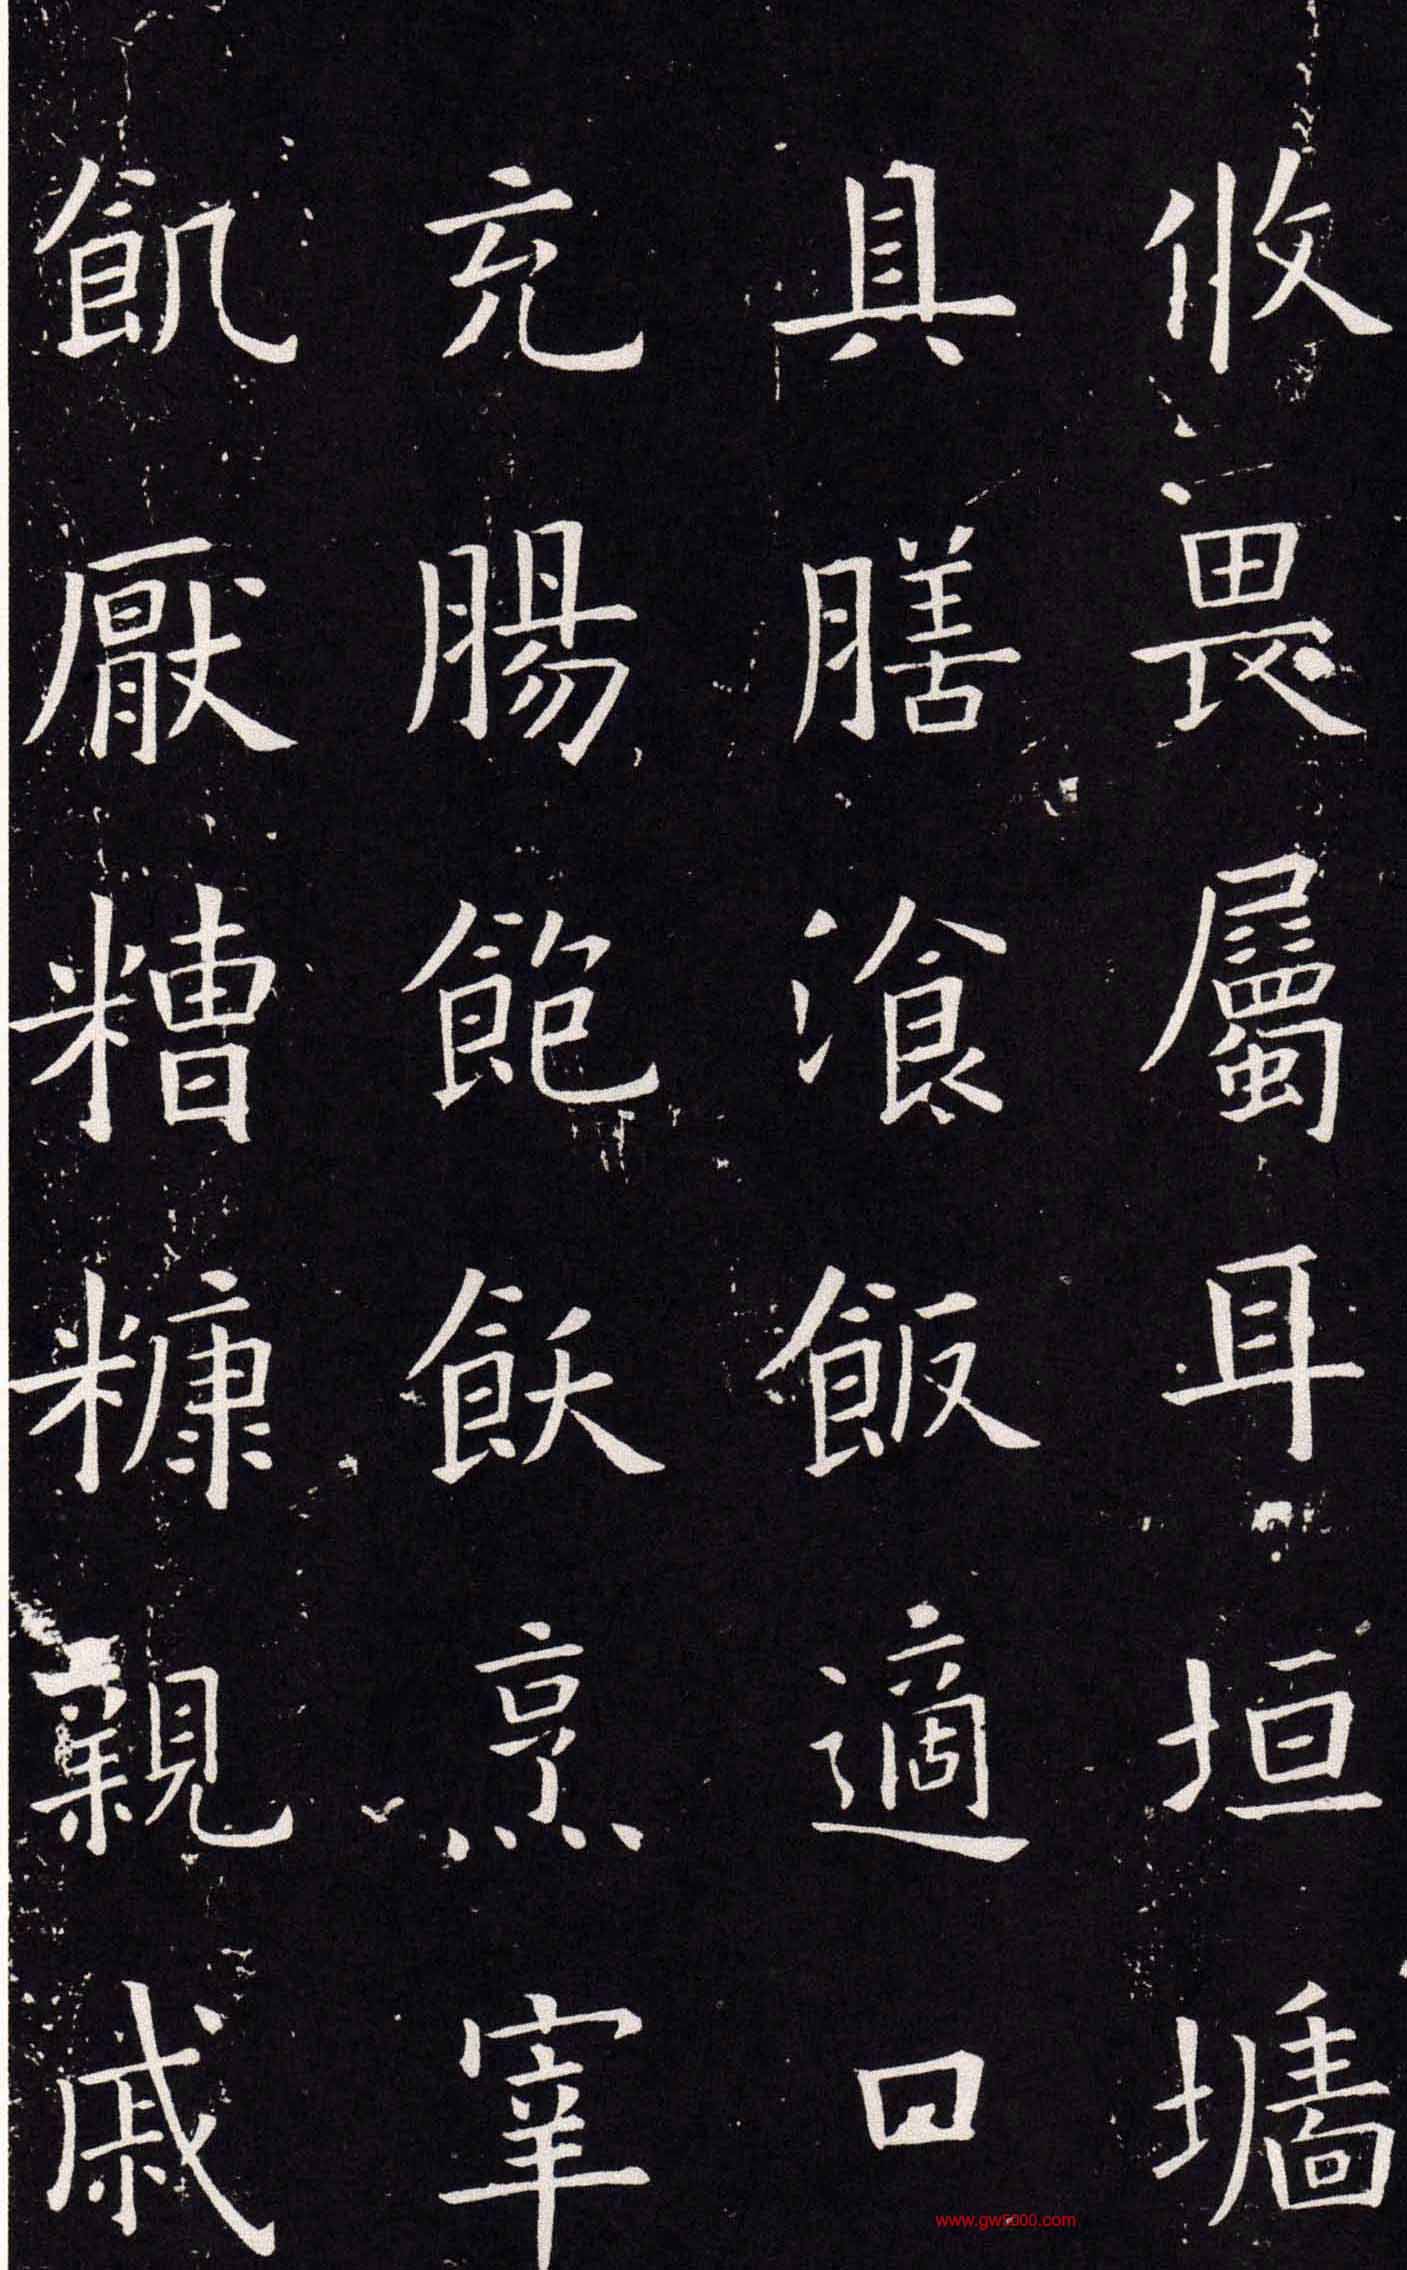 攸畏屬耳垣墻
具膳飡飯適口
充腸飽飫烹宰
飢厭糟糠親戚
www.gw5000.com